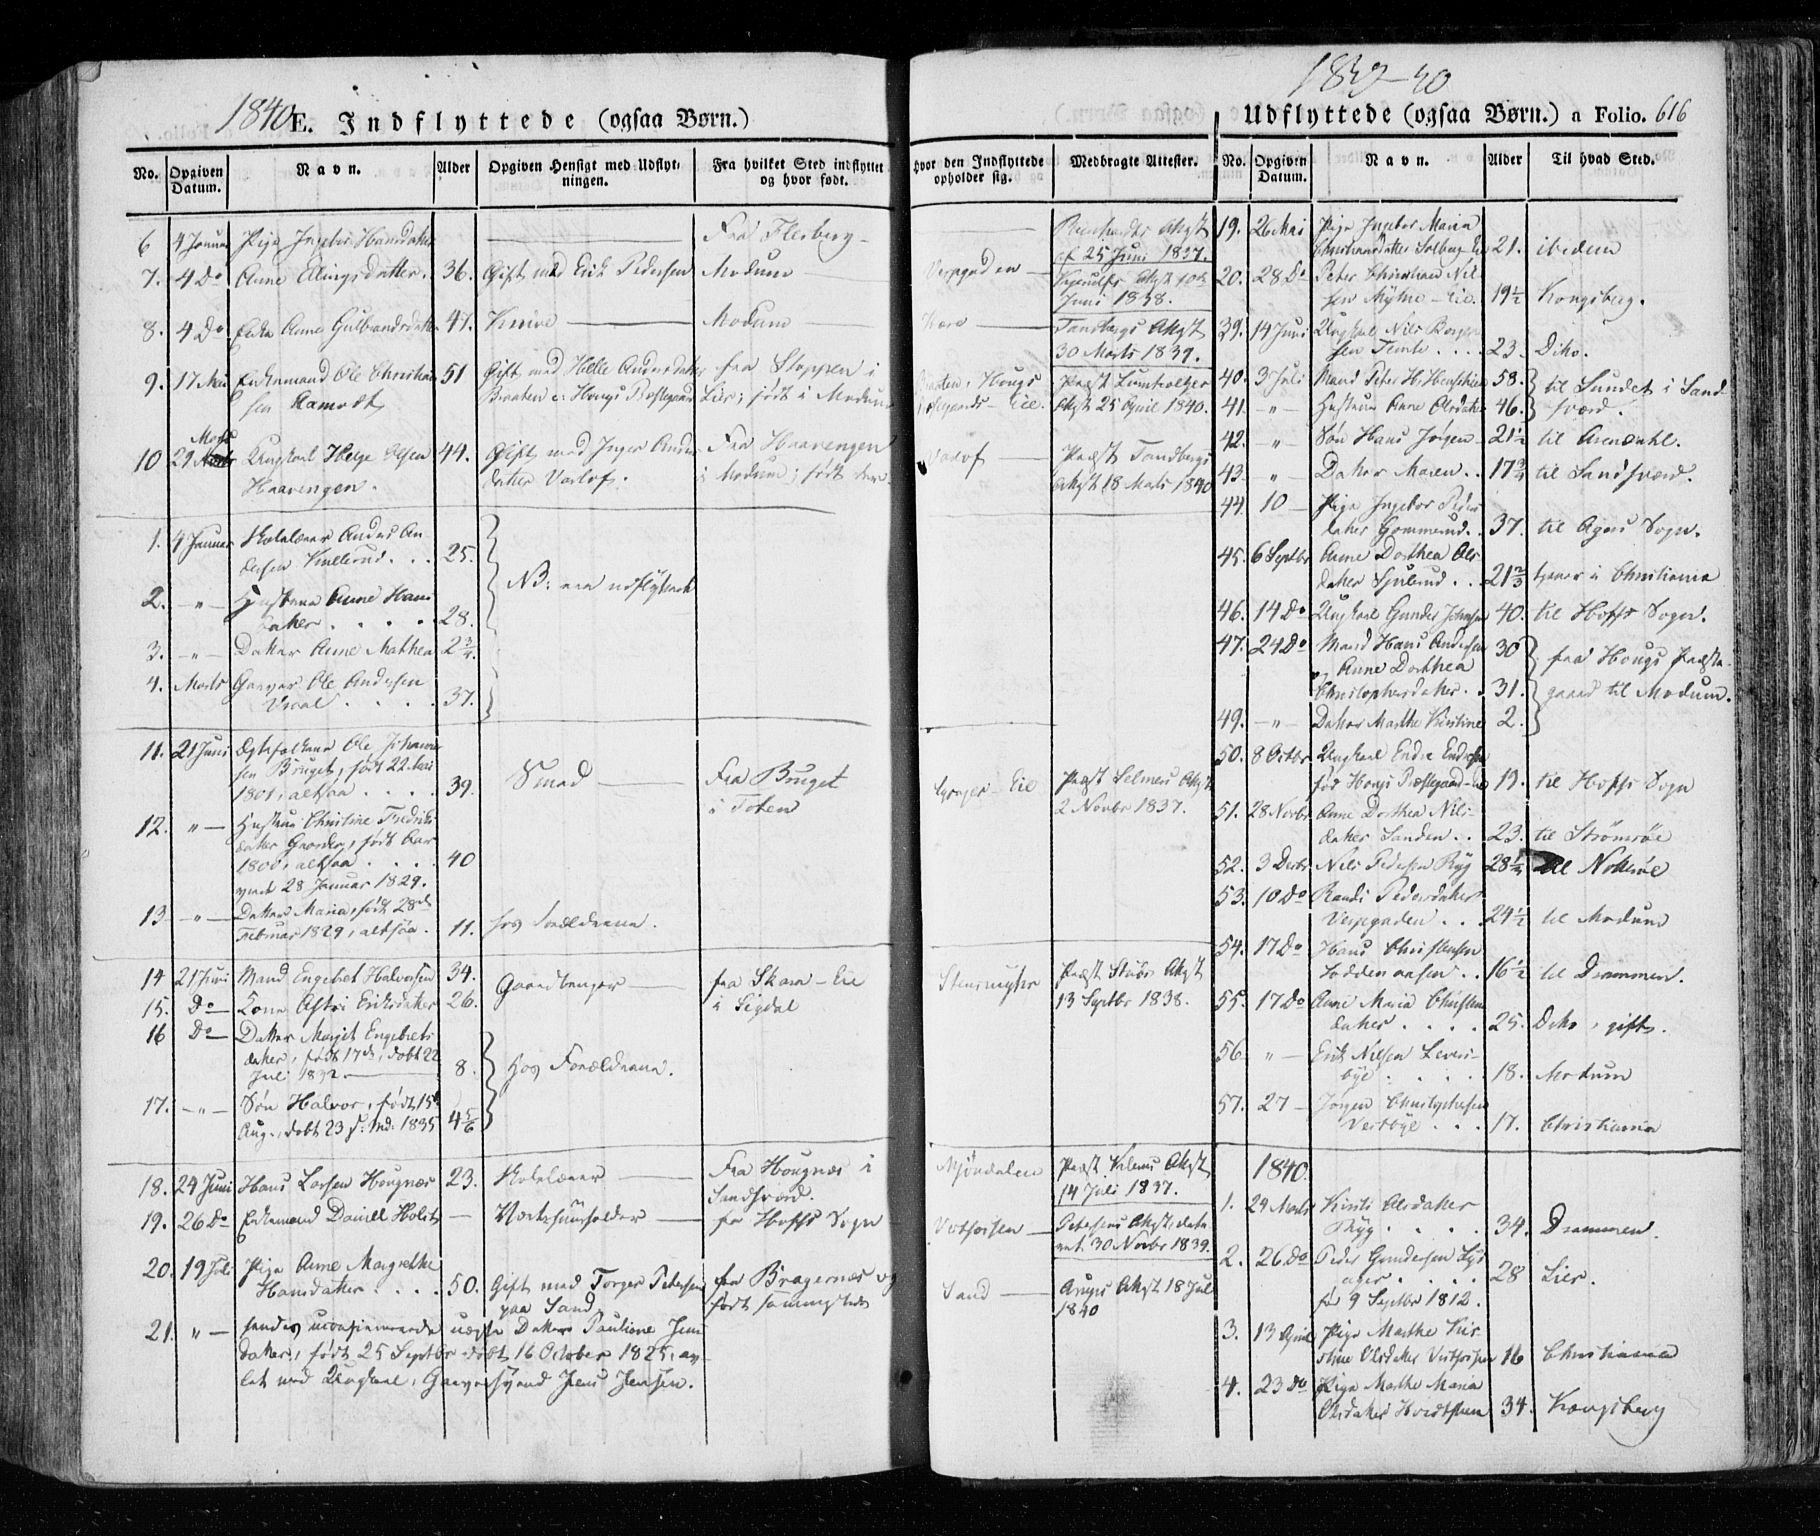 1840
E. Indflyttede (ogsaa Børn.)
No. Opgiven Datum. Navn. Alder Opgiven Hensigt med Udflytningen. Fra hvilket Sted indflyttet og hvor født.
6 4 Januar Pige Ingebor Hansdatter Fra Flesberg
7. 4 Do Anne Ellingsdatter. 36. Gift med Erik Pedersen Modum
8. 4 Do Enke Anne Gulbrandsdatter 47. Modum
9. 17 Mai Enkemand Ole Christian 51 Gift med Helle Andersdatter fra Stoppen i
sen Ramodt Braaten u. Hougs Præstegaard Lier; født i Modum
10 29 Marts Ungkarl Helge Olsen 44. Gift med Inger Anders Fra Haavengen
Haavengen. datter Varlof. i Modum; født der
1. 4 Januar Skolelærer Anders An
dersen 25. NB: ere udflyttede
2. -"- Hustrue Anne Hans
datter 28.
3. -"- Datter Anne Mathea 2 3/4.
4. Marts Garver Ole Andersen
37.
11. 21 Juni Ægtefolkene Ole Johanne
sen Bruget, født 22
1801, altsaa 39. Smed Fra Bruget
i Toten
12. "- Hustrue Christine Fredriks
datter født Aar
1800, altsaa 40
viede 28 Januar 1829.
13 -"- Datter Maria, født 28de
Februar 1829, altsaa 11. hos Forældrene.
14 21 Juni Mand Engebret Halvorsen 34. Gaardbruger fra Skare-Eie
15. Do Kone Astri Eriksdatter 26. i Sigdal
16 Do Datter Margit Engebrets
datter, født 17de, døbt 22
Juli 1832 8. hos Forældrene.
17. -"- Søn Halvor, født 15de
Aug., døbt 23 s: Md: 1835 4 5/6
18. 24 Juni Hans Larsen Hougnæs 23. Skolelærer Fra Hougnæs i
Sandsværd.
19. 26 Do Enkemand Daniell Holst - Værtshuusholder fra Hoffs Sogn
20. 19 Juli Pige Anne Margrethe
Hansdatter 50. Gift med Torger Pedersen fra Bragernes og
paa Sand. født sammesteds
21. "- hendes uconfirmerede uægte Datter Pauline Jens
datter, født 25 Septbr døbt 16 October 1825, av-
let med Ungkarl, Garversvend Jens Jensen.
1839-40
Udflyttede (ogsaa Børn.) a Folio. 616
Hvor den Indflyttede opholder sig. Medbragte Attester. No. Opgiven Datum. Navn. Alder Til hvad Sted.
Attest
af 25 Juni 1837.
Attest
Juni 1838.
Tandbergs Attest
30 Marts 1839.
Braaten, Hougs Præst Lumholtz
Præstegaards-Eie. Attest 25 April 1840.
Varlof Præst Tandbergs
Attest 18 Marts 1840
Eie Præst Selmers Attest
2 Novbr 1837.
Præst Attest
13 Septbr 1838.
Mjøndalen Præst Attest
14 Juli 1837.
Vestfossen Petersens Attest, date
ret 30 Novbr 1839.
Sand Arups Attest 18 Juli
1840
19. 26 Mai Pige Ingebor Maria
Christiansdatter Solberg Eie 21. ibidem
20. 28 Do Peter Christian Nil
sen Mylne-Eie. 19 1/2 Kongsberg.
39. 14 Juni Ungkarl Nils
sen 23. Dito.
40. 3 Juli Mand Peter H. 58. til Sundet i Sand
41. -"- Hustrue Anne Olsdatter 46. sværd.
42. " Søn Hans Jørgen 21 1/2 til Arendahl.
43 " Datter Maren 17 3/4 til Sandsværd.
44. 10 - Pige Ingebor Peders
datter Gommerud. 37. til Agers Sogn.
45. 6 Septbr Anne Dorthea Ols
datter 21 2/3 tjener i Christiania
46. 14 Do Ungkarl Gunder Johnsen 40. til Hoffs Sogn.
47. 24 Do Mand Hans Andersen 30 fra Hougs Præste-
og Anne Dorthea
Christophersdatter 31. gaard til Modum.
49. -"- Datter Marthe Kirstine 2.
50. 8 Octbr Ungkarl Endre Endresen
fra Hougs Præstegaard 19. til Hoffs Sogn
51. 28 Novbr Anne Dorthea Nils-
datter Sanden 23. til Strømsøe
52. 3 Decbr Nils Pedersen Ryg 28 1/2 til
53. 10 Do Randi Pedersdatter
24 1/2 til Modum
54. 17 Do Hans Christensen
16 1/2 til Drammen.
55. 17 Do Anne Maria Christens
datter 25. Dito, gift.
56 " Erik Nilsen
18. Modum
57. 27 - Jørgen Christophersen
17. Christiania
1840.
1. 24 Marts Kirsti Olsdatter
Ryg 34. Drammen.
2. 26 Do Peder Gundersen
28 Lier.
før 9 Septbr 1812.
3. 13 April Pige Marthe Kir
stine Olsdatter Vestfossen 16 Christiania
4. 23 Do Pige Marthe Maria
Olsdatter 34. Kongsberg